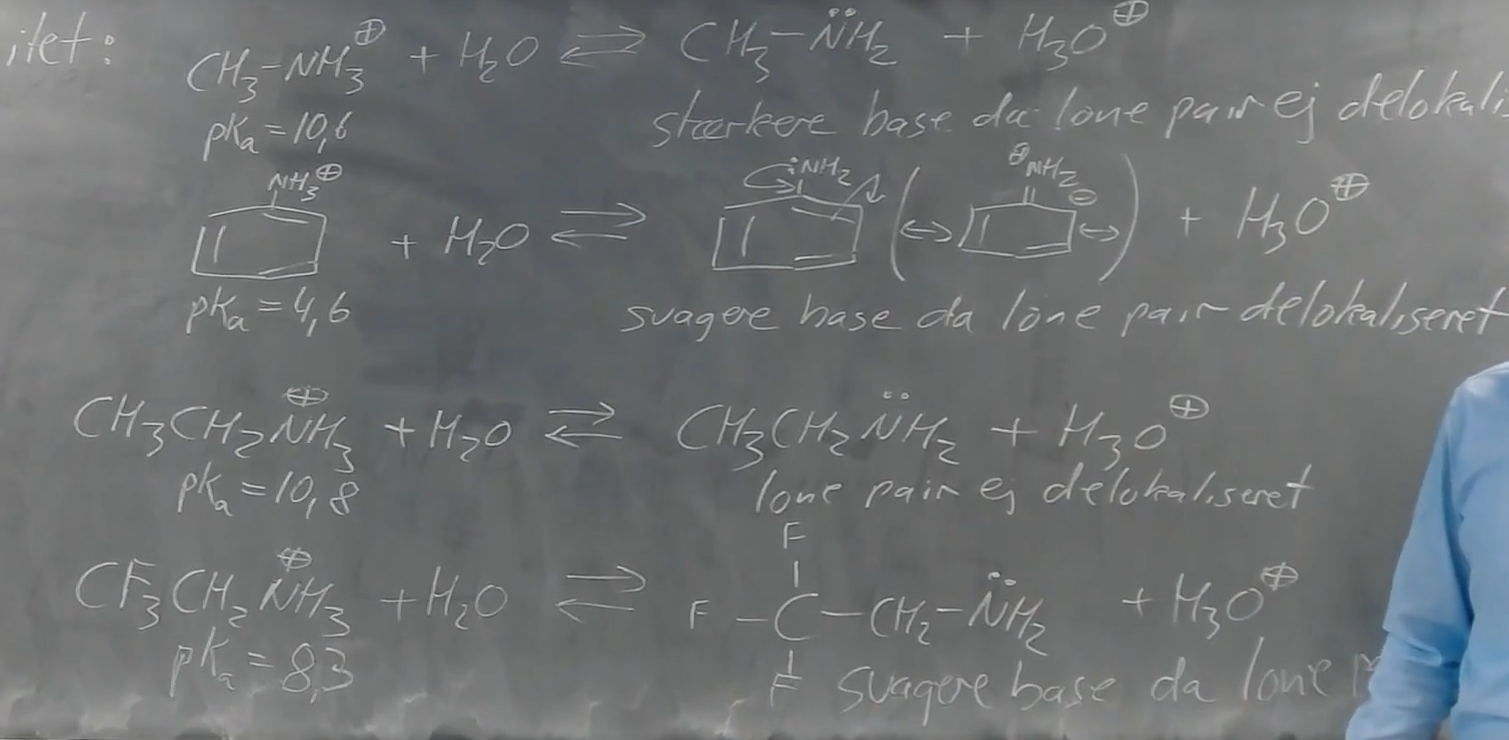 itet: CH₃-NH₃⊕ + H₂O ⇌ CH₃-N̈H₂ + H₃O⊕
pKₐ = 10,6 stærkere base da lone pair ej delokali
NH₃⊕ + H₂O ⇌ :NH₂ ( ↔ ⊕NH₂ ⊖ ↔ ) + H₃O⊕
pKₐ = 4,6 svagere base da lone pair delokaliseret
CH₃CH₂N⊕H₃ + H₂O ⇌ CH₃CH₂N̈H₂ + H₃O⊕
pKₐ = 10,8 lone pair ej delokaliseret
F
CF₃CH₂N⊕H₃ + H₂O ⇌ F-C-CH₂-N̈H₂ + H₃O⊕
F
pKₐ = 8,3 svagere base da lone p